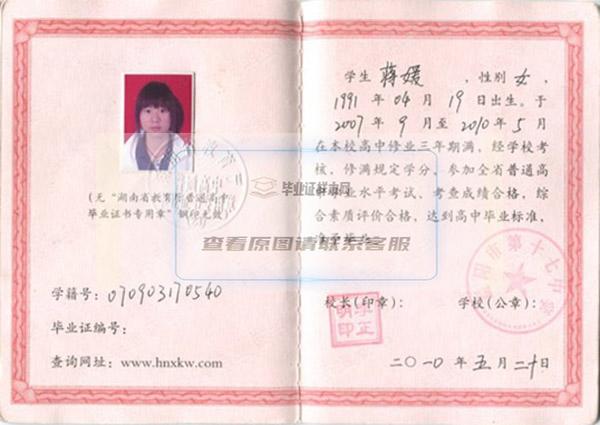 (无“湖南省教育厅普通高中
毕业证书专用章”钢印无效)
学籍号：070903170540
毕业证编号：
查询网址：www.hnxkw.com
学生 蒋媛 ，性别 女 ，
1991 年 04 月 19 日出生。于
2007 年 9 月至 2010 年 5 月
在本校高中修业三年期满，经学校考
核，修满规定学分，参加全省普通高
中毕业水平考试、考查成绩合格，综
合素质评价合格，达到高中毕业标准，
准予毕业。
校长(印章)： 学校(公章)：
李正明印
市第十七中学
二〇一〇年 五 月 二十日
毕业证样本网
查看原图请联系客服